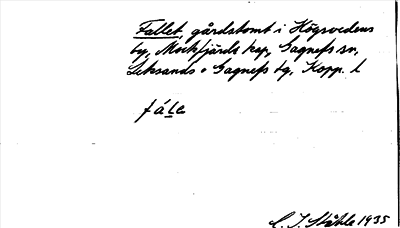 Fallet, gårdstomt i Högsvedens
by, Mockfjärds kap, Gagnefs sn,
Leksands o Gagnefs tg, Kopp. l
fále
C. I. Ståhle 1935